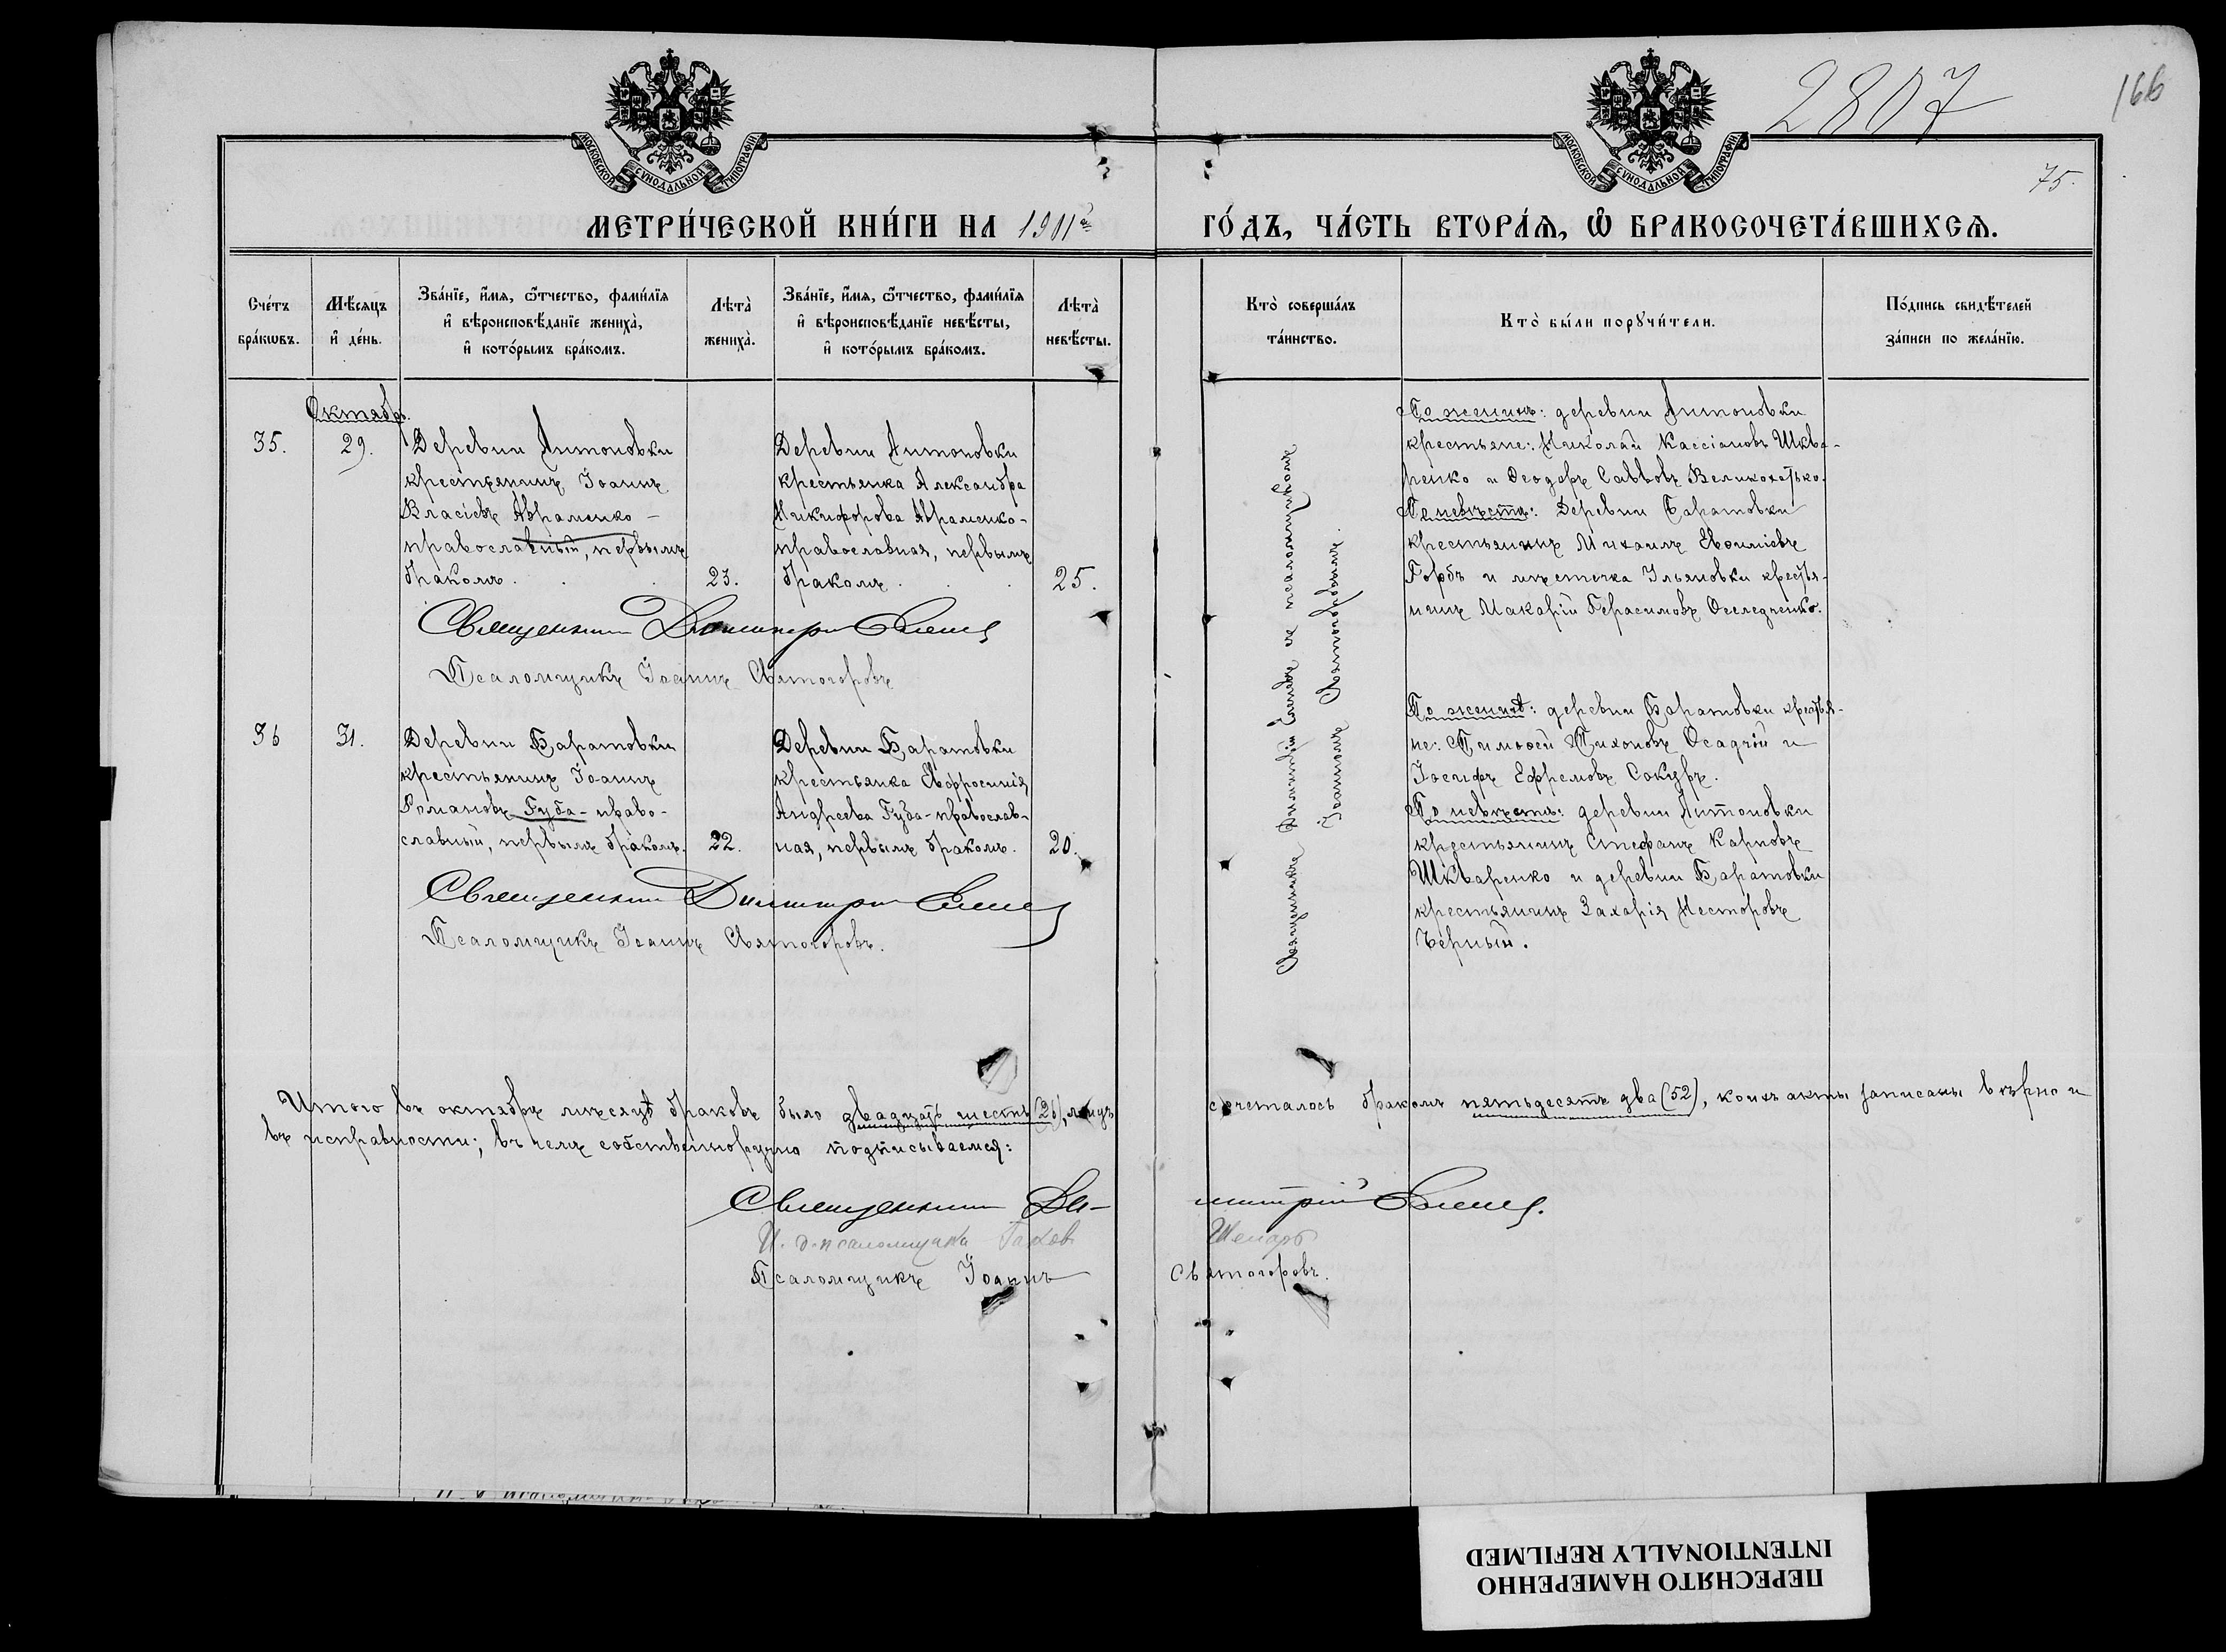 2807
166
75.
МОСКОВСКОЙ СѴНОДАЛЬНОЙ ТИПОГРАФІИ
МОСКОВСКОЙ СѴНОДАЛЬНОЙ ТИПОГРАФІИ
МЕТРИ́ЧЕСКОЙ КНИ́ГИ НА 1911й ГО́ДЪ, ЧА́СТЬ ВТОРА́Ѧ, Ѡ҆ БРАКОСОЧЕТА́ВШИХСѦ.
Сче́тъ
бра́кѡвъ.
Мѣ́сяцъ
и҆ де́нь.
Зва́нїе, и҆́мѧ, ѻ҆́тчество, фами́лїѧ
и҆ вѣроисповѣ́данїе жениха̀,
и҆ кото́рымъ бра́комъ.
Лѣта̀
жениха̀.
Зва́нїе, и҆́мѧ, ѻ҆́тчество, фами́лїѧ
и҆ вѣроисповѣ́данїе невѣ́сты,
и҆ кото́рымъ бра́комъ.
Лѣта̀
невѣ́сты.
Кто̀ соверша́лъ
та́инство.
Кто̀ бы́ли порꙋчи́тели.
По́дпись свидѣ́телей
за́писи по жела́нїю.
Октябрь.
35.
29.
Деревни Антоновки
крестьянинъ Іоаннъ
Власіевъ Авраменко -
православный, первымъ
бракомъ.
23.
Деревни Антоновки
крестьянка Александра
Никифорова Авраменко -
православная, первымъ
бракомъ.
25.
Священникъ Димитрій
Псаломщикъ Іоаннъ Святогоровъ
Священникъ Димитрій съ псаломщикомъ
Іоанномъ Святогоровымъ.
По женихѣ: деревни Антоновки
крестьяне: Николай Кассіановъ Шква-
ренко и Ѳеодоръ Саввовъ Великохатько.
По невѣстѣ: Деревни Баратовки
крестьянинъ Михаилъ Евѳиміевъ
Горбъ и мѣстечка Ульяновки крестья-
нинъ Макарій Герасимовъ Оселедченко.
36
31.
Деревни Баратовки
крестьянинъ Іоаннъ
Романовъ Губа - право-
славный, первымъ бракомъ.
22.
Деревни Баратовки
крестьянка Евфросинія
Андреева Губа - православ-
ная, первымъ бракомъ.
20.
Священникъ Димитрій
Псаломщикъ Іоаннъ Святогоровъ.
По женихѣ: деревни Баратовки крестья-
не: Тимоѳей Тихоновъ Осадчій и
Іосифъ Ефремовъ Сокуръ.
По невѣстѣ: деревни Антоновки
крестьянинъ Стефанъ Карповъ
Шкваренко и деревни Баратовки
крестьянинъ Захарія Несторовъ
Чёрный.
Итого въ октябрѣ мѣсяцѣ браковъ было двадцать шесть (26), лицъ сочеталось бракомъ пятьдесятъ два (52), коихъ акты записаны вѣрно и
въ исправности; въ чемъ собственноручно подписываемся:
Священникъ Димитрій
И. д. псаломщика Іаковъ
Псаломщикъ Іоаннъ Святогоровъ.
ПЕРЕСНЯТО НАМЕРЕННО
INTENTIONALLY REFILMED